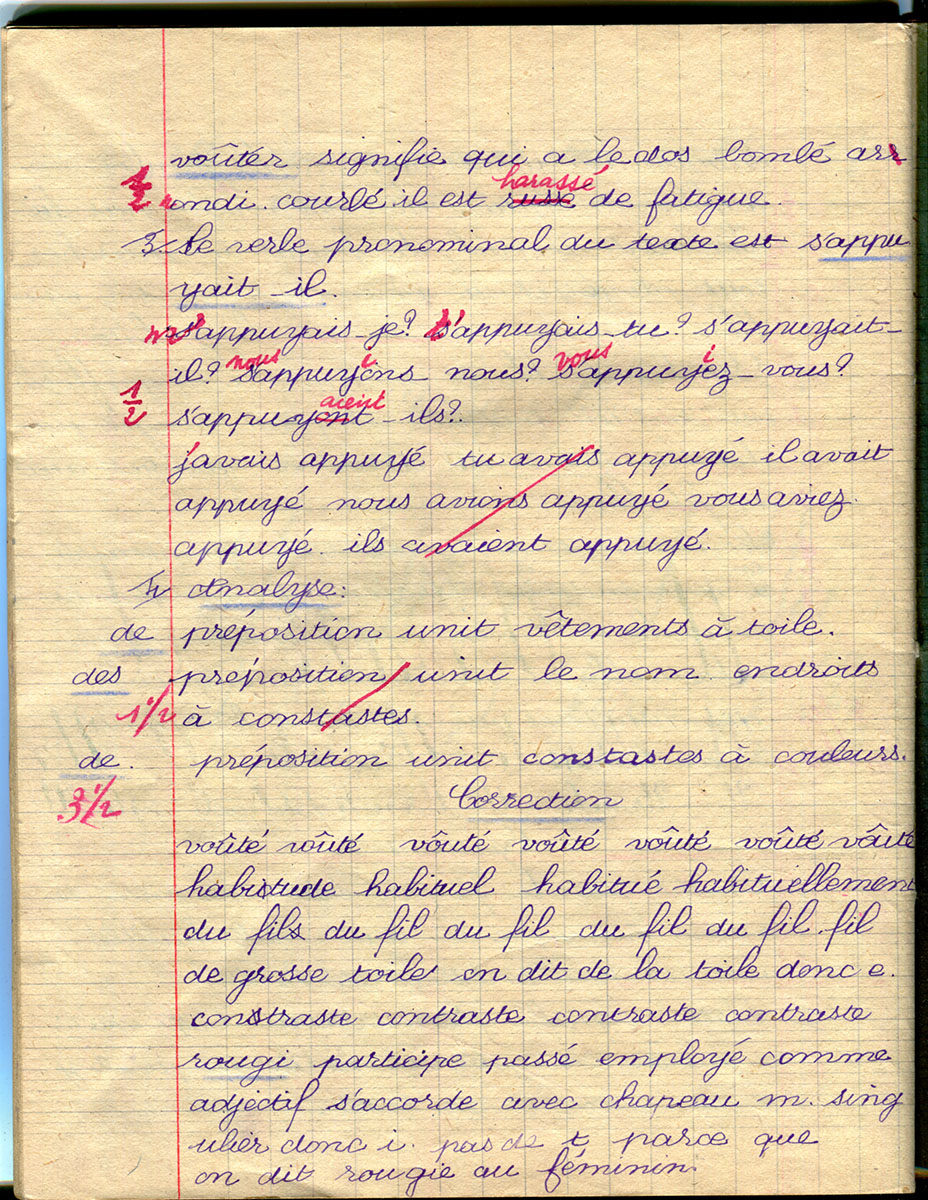 voûter signifie qui a le dos bombé arr
harassé
1/2 ondi. courbé il est russe de fatigue.
3. Le verbe pronominal du texte est s'appu
yait-il.
m' s'appuyais-je? t' s'appuyais-tu? s'appuyait-
nous i vous i
il? s'appuyons nous? s'appuyez-vous?
aient
1/2 s'appuyont-ils?.
j'avais appuyé tu avais appuyé il avait
appuyé nous avions appuyé vous aviez.
appuyé. ils avaient appuyé.
4 Analyse:
de préposition unit vêtements à toile.
des préposition unit le nom endroits
1 1/2 à constastes.
de. préposition unit constastes à couleurs.
3 1/2 Correction
voûté voûté voûté voûté voûté voûté voûté
habitude habituel habitué habituellement
du fils du fil du fil du fil du fil. fil
de grosse toile on dit de la toile donc e.
constraste contraste contraste contraste
rougi participe passé employé comme
adjectif s'accorde avec chapeau m. sing
ulier donc i. pas de t parce que
on dit rougie au féminin.